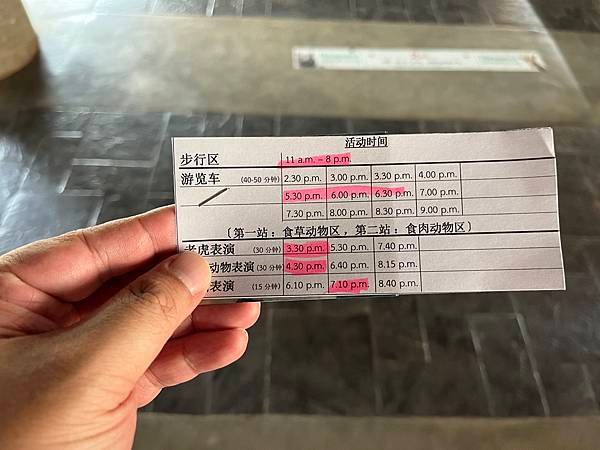 活动时间
步行区 11 a.m. – 8 p.m.
游览车 (40-50 分钟) 2.30 p.m. 3.00 p.m. 3.30 p.m. 4.00 p.m.
5.30 p.m. 6.00 p.m. 6.30 p.m. 7.00 p.m.
7.30 p.m. 8.00 p.m. 8.30 p.m. 9.00 p.m.
〔第一站：食草动物区，第二站：食肉动物区〕
老虎表演 (30分钟) 3.30 p.m. 5.30 p.m. 7.40 p.m.
动物表演 (30 分钟) 4.30 p.m. 6.40 p.m. 8.15 p.m.
表演 (15分钟) 6.10 p.m. 7.10 p.m. 8.40 p.m.